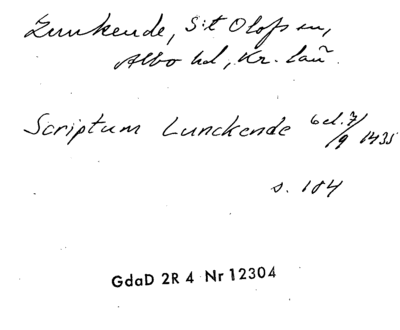 Lunkende, S:t Olofs sn,
Albo hd, Kr. län.
Scriptum Lunckende 7/9 1435
s. 184
GdaD 2R 4 Nr 12304